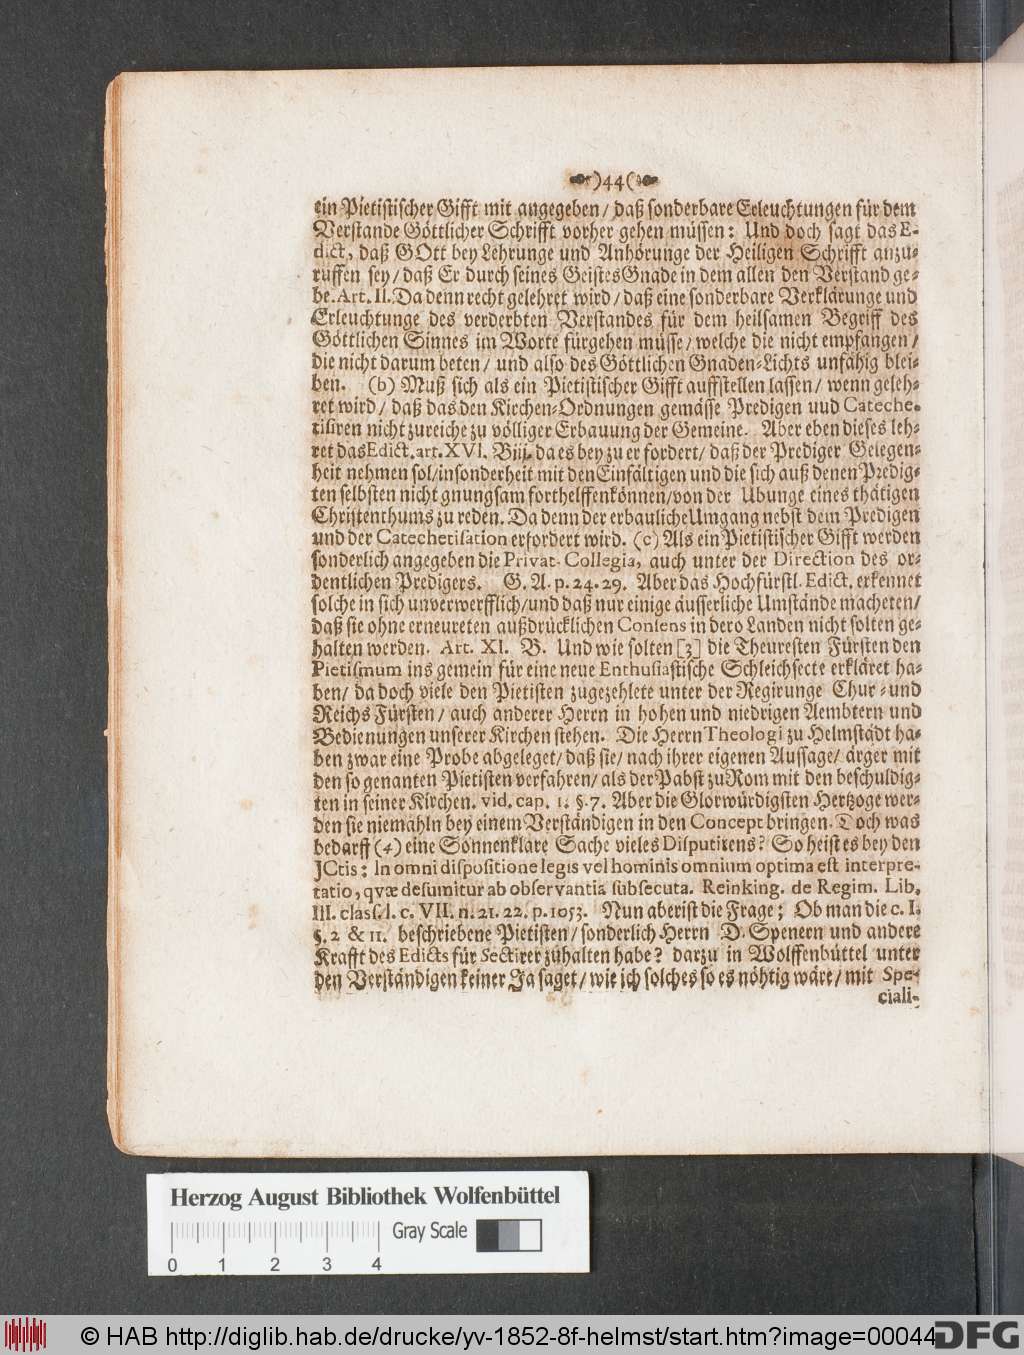 )44(
ein Pietistischer Gifft mit angegeben / daß sonderbare Erleuchtungen für dem
Verstande Göttlicher Schrifft vorher gehen müssen: Und doch sagt das E-
dict, daß GOtt bey Lehrunge und Anhörunge der Heiligen Schrifft anzu-
ruffen sey / daß Er durch seines Geistes Gnade in dem allen den Verstand ge-
be. Art. II. Da denn recht gelehret wird / daß eine sonderbare Verklärunge und
Erleuchtunge des verderbten Verstandes für dem heilsamen Begriff des
Göttlichen Sinnes im Worte fürgehen müsse / welche die nicht empfangen /
die nicht darum beten / und also des Göttlichen Gnaden-Lichts unfähig blei-
ben. (b) Muß sich als ein Pietistischer Gifft auffstellen lassen / wenn geleh-
ret wird / daß das den Kirchen-Ordnungen gemässe Predigen uud Cateche-
tisiren nicht zureiche zu völliger Erbauung der Gemeine. Aber eben dieses leh-
ret das Edict. art. XVI. Biij. da es bey zu er fordert / daß der Prediger Gelegen-
heit nehmen sol / insonderheit mit den Einfältigen und die sich auß denen Predig-
ten selbsten nicht gnungsam forthelffen können / von der Ubunge eines thätigen
Christenthums zu reden. Da denn der erbauliche Umgang nebst dem Predigen
und der Catechetisation erfordert wird. (c) Als ein Pietistischer Gifft werden
sonderlich angegeben die Privat-Collegia, auch unter der Direction des or-
dentlichen Predigers. G. A. p. 24. 29. Aber das Hochfürstl. Edict. erkennet
solche in sich unverwerfflich / und daß nur einige äusserliche Umstände macheten /
daß sie ohne erneureten außdrücklichen Consens in dero Landen nicht solten ge-
halten werden. Art. XI. B. Und wie solten [3] die Theuresten Fürsten den
Pietismum ins gemein für eine neue Enthusiastische Schleichsecte erkläret ha-
ben / da doch viele den Pietisten zugezehlete unter der Regirunge Chur- und
Reichs Fürsten / auch anderer Herrn in hohen und niedrigen Aembtern und
Bedienungen unserer Kirchen stehen. Die Herrn Theologi zu Helmstädt ha-
ben zwar eine Probe abgeleget / daß sie / nach ihrer eigenen Aussage / ärger mit
den so genanten Pietisten verfahren / als der Pabst zu Rom mit den beschuldig-
ten in seiner Kirchen. vid. cap. 1. §. 7. Aber die Glorwürdigsten Hertzoge wer-
den sie niemahln bey einem Verständigen in den Concept bringen. Doch was
bedarff (4) eine Sonnenklare Sache vieles Disputirens? So heist es bey den
JCtis: In omni dispositione legis vel hominis omnium optima est interpre-
tatio, qvæ desumitur ab observantia subsecuta. Reinking. de Regim. Lib.
III. class. l. c. VII. n. 21. 22. p. 1053. Nun aber ist die Frage; Ob man die c. I.
§. 2 & 11. beschriebene Pietisten / sonderlich Herrn D. Spenern und andere
Krafft des Edicts für Sectirer zuhalten habe? darzu in Wolffenbüttel unter
den Verständigen keiner Ja saget / wie ich solches so es nöhtig wäre / mit Spe-
ciali-
Herzog August Bibliothek Wolfenbüttel
Gray Scale
0 1 2 3 4
© HAB http://diglib.hab.de/drucke/yv-1852-8f-helmst/start.htm?image=00044
DFG